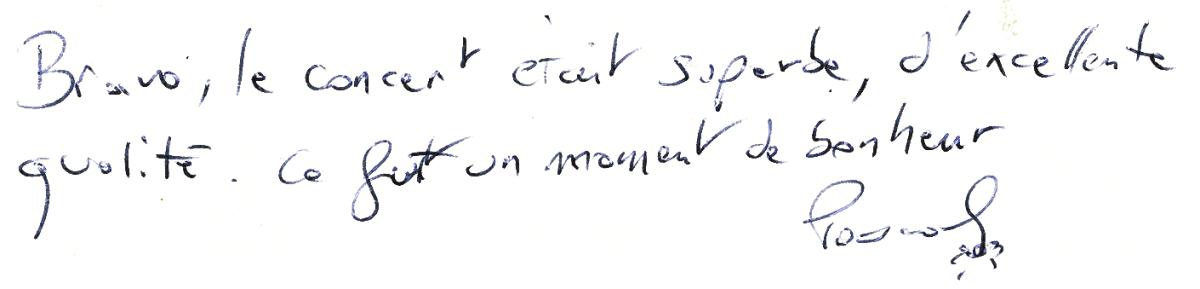 Bravo, le concert était superbe, d'excellente
qualité. Ce fut un moment de bonheur